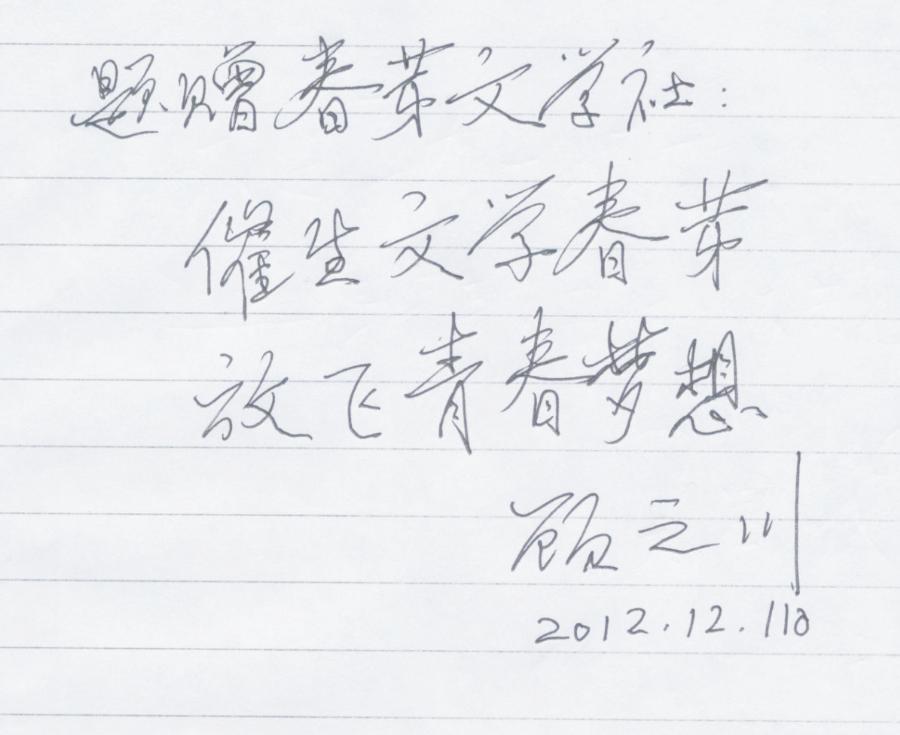 题赠春芽文学社:
催生文学春芽
放飞青春梦想
顾之川
2012.12.110